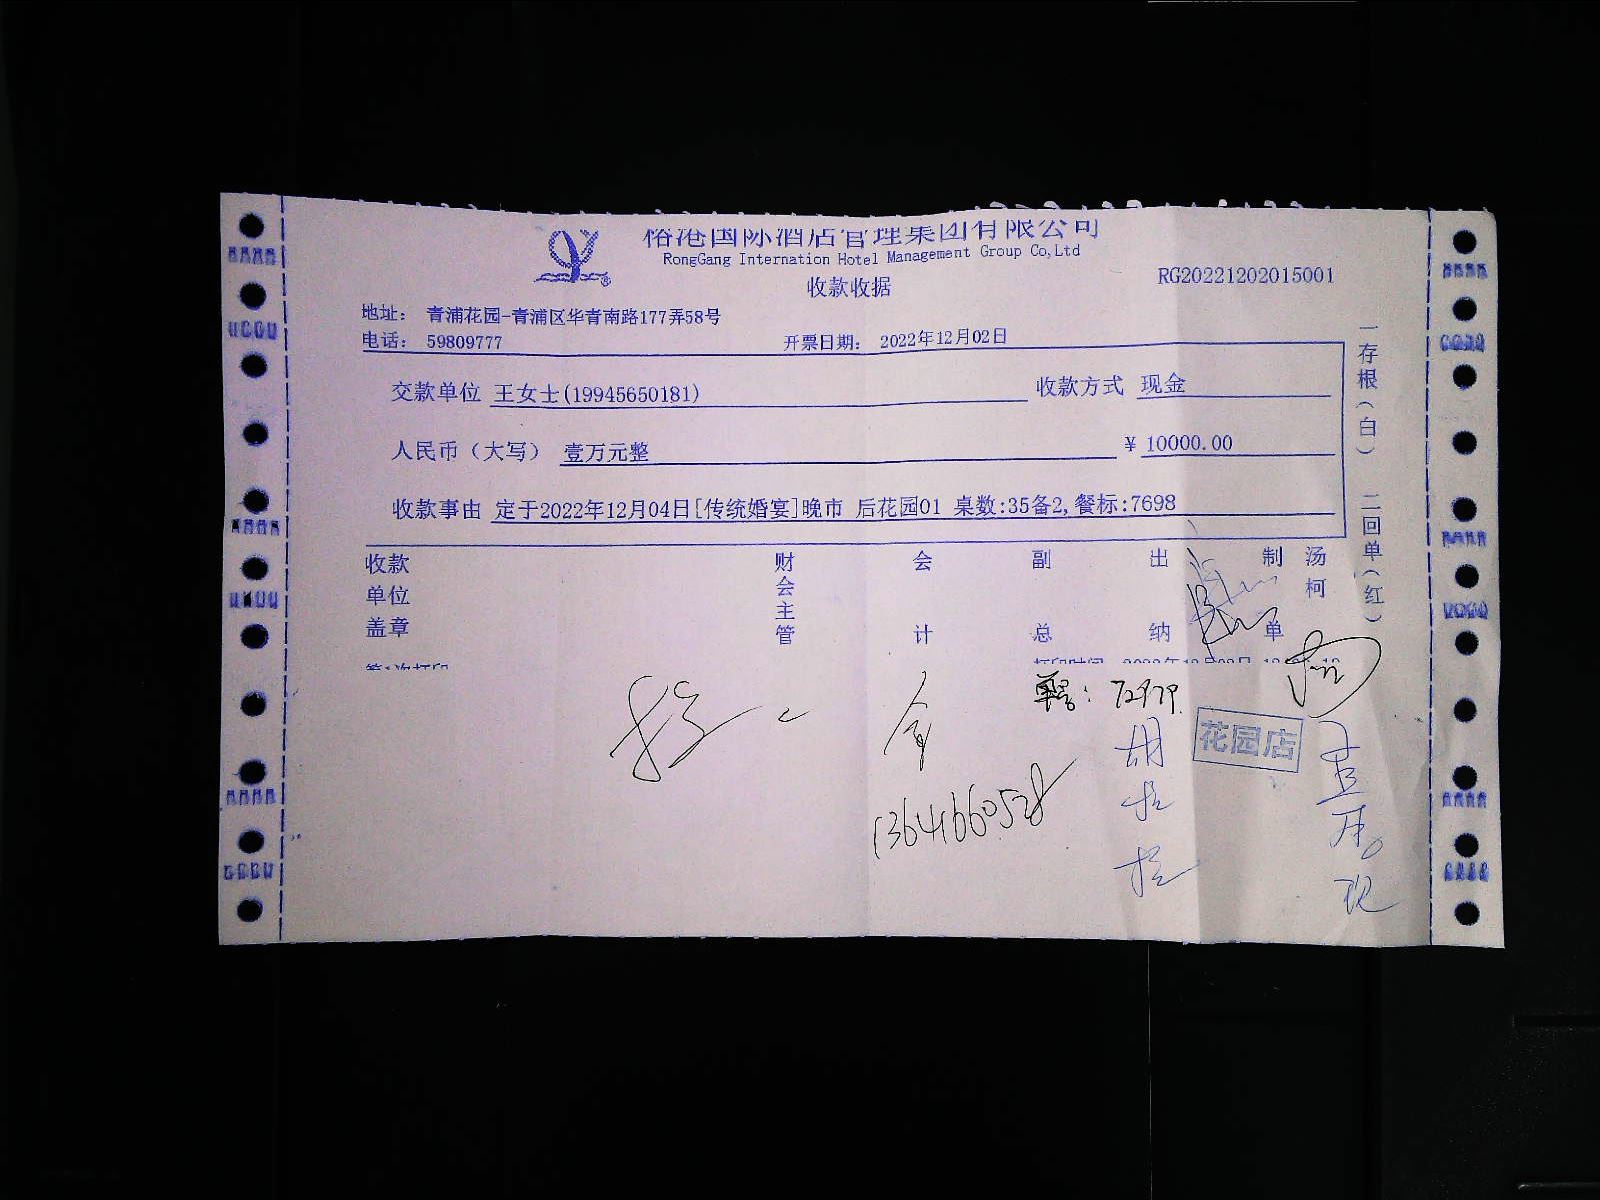 榕港国际酒店管理集团有限公司
RongGang Internation Hotel Management Group Co,Ltd
收款收据
RG20221202015001
地址： 青浦花园-青浦区华青南路177弄58号
电话： 59809777 开票日期： 2022年12月02日
交款单位 王女士(19945650181) 收款方式 现金
人民币（大写） 壹万元整 ¥ 10000.00
收款事由 定于2022年12月04日[传统婚宴]晚市 后花园01 桌数:35备2,餐标:7698
一存根（白） 二回单（红）
收款单位盖章 财会主管 会计 副总 出纳 制单 汤柯
第1次打印 打印时间
单号: 72979
花园店
13641660528